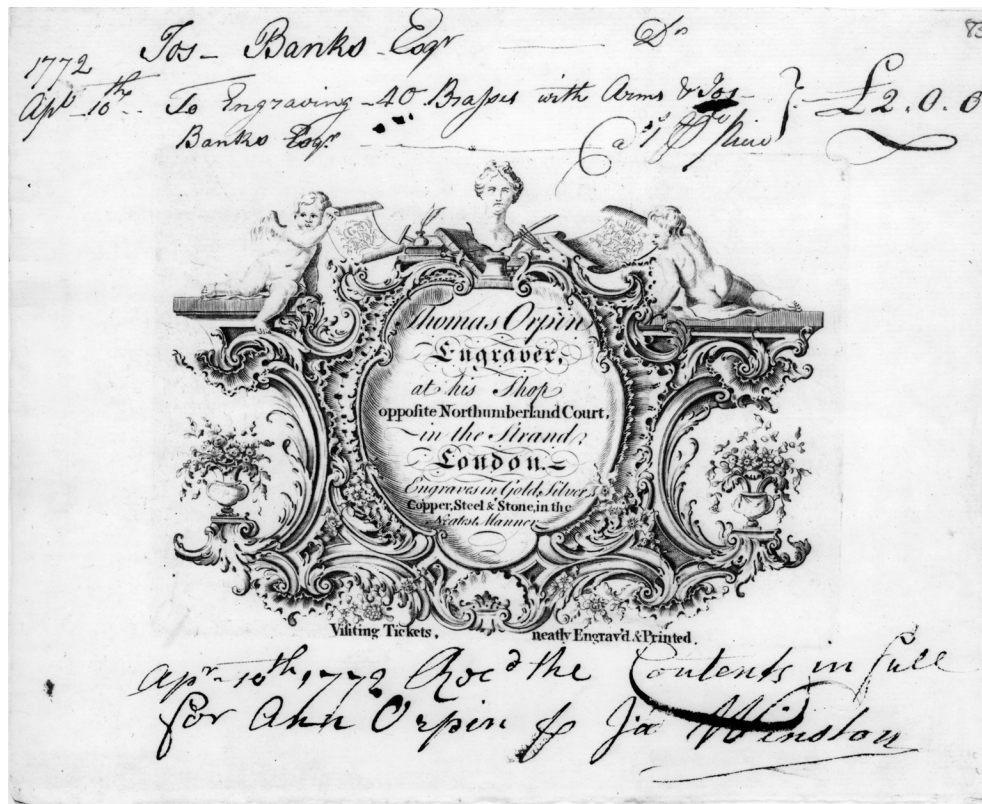 Jos- Banks Esqr Dr
1772
Apl 10th To Engraving 40 Brasses with Arms & Jos- £2.0.0
Banks Esqr a 1s p piece
Thomas Orpin
Engraver,
at his Shop
opposite Northumberland Court,
in the Strand,
London.
Engraves in Gold, Silver,
Copper, Steel & Stone, in the
Neatest Manner
Visiting Tickets, neatly Engrav'd & Printed.
Apr 10th, 1772 Rec'd the Contents in full
for Ann Orpin Ja Winston